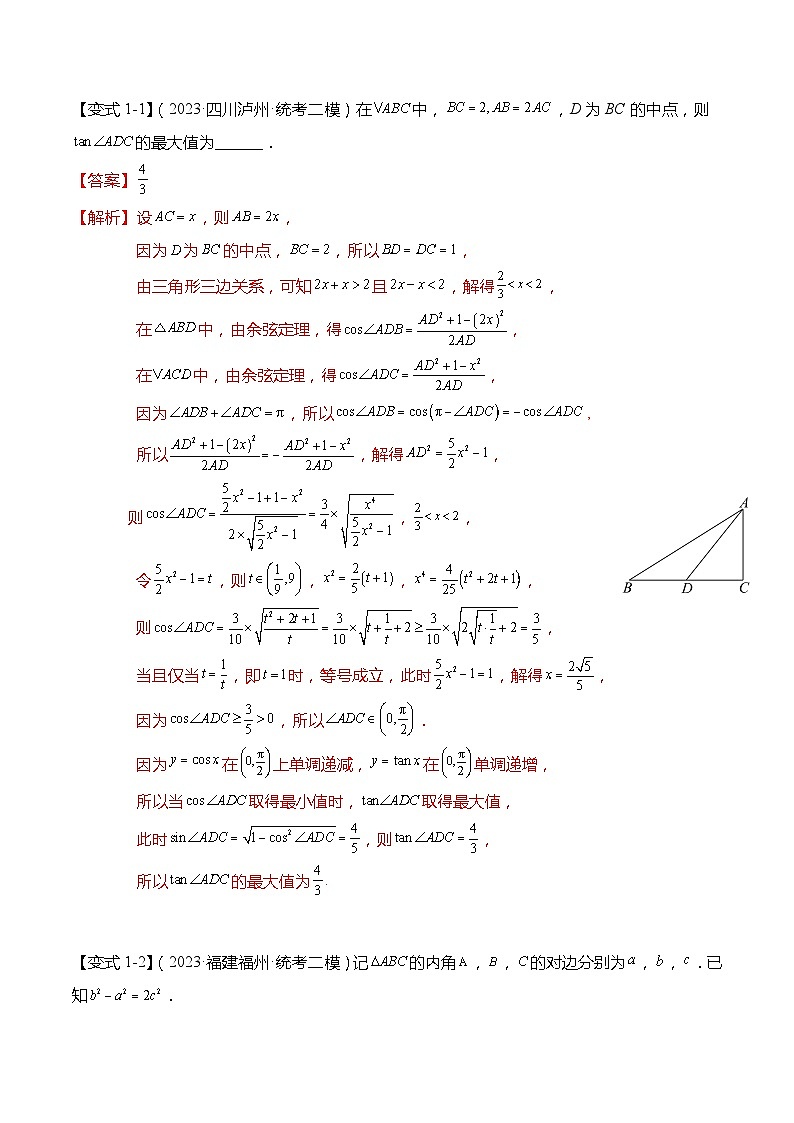 【变式 1-1】（2023·四川泸州·统考二模）在VABC中，BC = 2, AB = 2AC，D 为 BC 的中点，则
tan∠ADC的最大值为______．
【答案】4/3
【解析】设 AC = x，则 AB = 2x，
因为 D 为 BC 的中点，BC = 2，所以 BD = DC = 1，
由三角形三边关系，可知 2x + x > 2 且 2x − x < 2，解得 2/3 < x < 2，
在△ABD中，由余弦定理，得cos∠ADB = (AD² + 1 − (2x)²)/(2AD)，
在VACD中，由余弦定理，得cos∠ADC = (AD² + 1 − x²)/(2AD)，
因为∠ADB + ∠ADC = π，所以cos∠ADB = cos(π − ∠ADC) = − cos∠ADC，
所以 (AD² + 1 − (2x)²)/(2AD) = − (AD² + 1 − x²)/(2AD)，解得 AD² = 5/2 x² − 1，
则 cos∠ADC = (5/2 x² − 1 + 1 − x²)/(2 × √(5/2 x² − 1)) = 3/4 × √(x⁴/(5/2 x² − 1))，2/3 < x < 2，
令 5/2 x² − 1 = t，则 t ∈ (1/9, 9)，x² = 2/5 (t + 1)，x⁴ = 4/25 (t² + 2t + 1)，
则 cos∠ADC = 3/10 × √((t² + 2t + 1)/t) = 3/10 × √(t + 1/t + 2) ≥ 3/10 × √(2√(t · 1/t) + 2) = 3/5，
当且仅当 t = 1/t，即 t = 1 时，等号成立，此时 5/2 x² − 1 = 1，解得 x = 2√5/5，
因为 cos∠ADC ≥ 3/5 > 0，所以∠ADC ∈ (0, π/2)．
因为 y = cos x 在(0, π/2)上单调递减，y = tan x 在(0, π/2)单调递增，
所以当cos∠ADC取得最小值时，tan∠ADC取得最大值，
此时 sin∠ADC = √(1 − cos²∠ADC) = 4/5，则 tan∠ADC = 4/3，
所以tan∠ADC的最大值为 4/3.
A
B D C
【变式 1-2】（2023·福建福州·统考二模）记ΔABC的内角 A，B，C的对边分别为a，b，c．已
知b² − a² = 2c²．